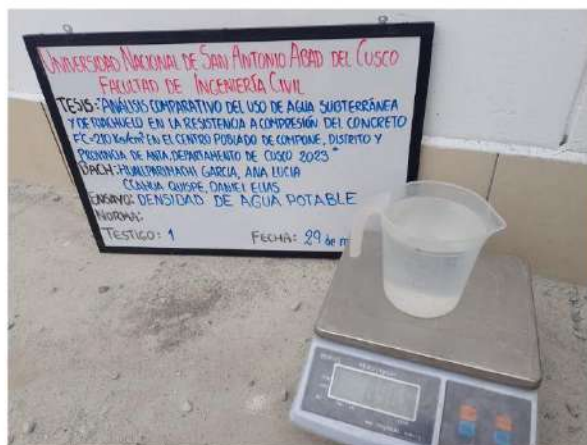 UNIVERSIDAD NACIONAL DE SAN ANTONIO ABAD DEL CUSCO
FACULTAD DE INGENIERÍA CIVIL
TESIS: "ANÁLISIS COMPARATIVO DEL USO DE AGUA SUBTERRÁNEA
Y DE RIACHUELO EN LA RESISTENCIA A COMPRESIÓN DEL CONCRETO
F'C=210 KG/CM² EN EL CENTRO POBLADO DE COMPONE, DISTRITO Y
PROVINCIA DE ANTA, DEPARTAMENTO DE CUSCO 2023"
BACH: HUALLPARIMACHI GARCIA, ANA LUCIA
CCAHUA QUISPE, DANIEL ELIAS
ENSAYO: DENSIDAD DE AGUA POTABLE
NORMA:
TESTIGO: 1 FECHA: 29 de